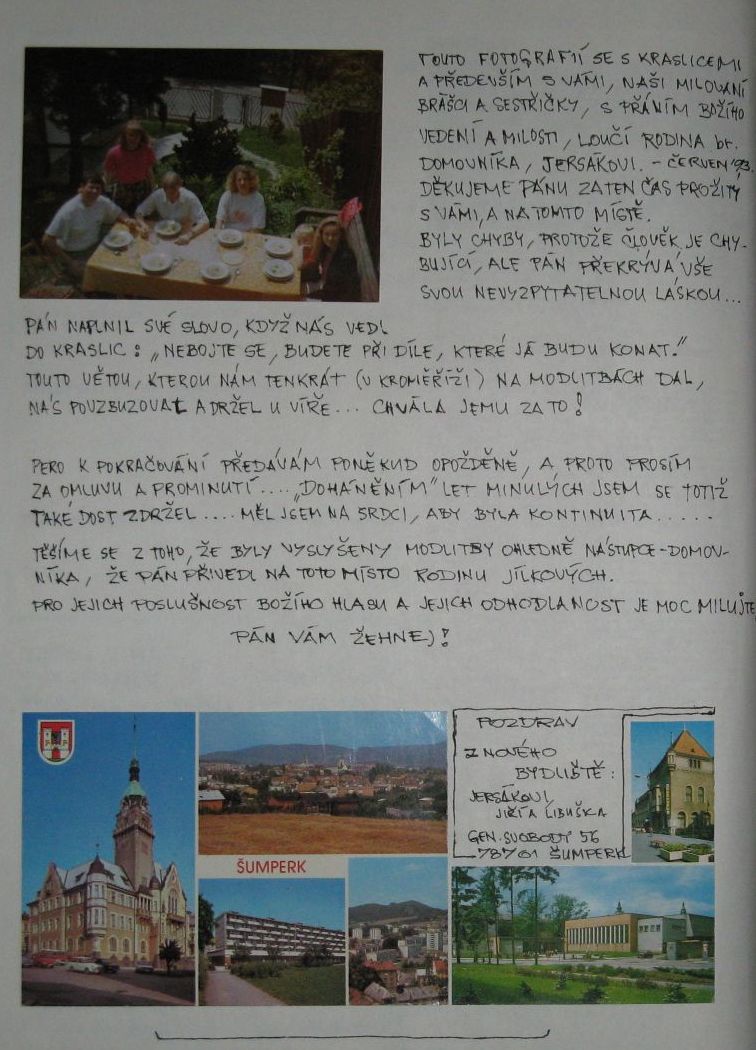 TOUTO FOTOGRAFIÍ SE S KRASLICEMI
A PŘEDEVŠÍM S VÁMI, NAŠI MILOVANÍ
BRÁŠCI A SESTŘIČKY, S PŘÁNÍM BOŽÍHO
VEDENÍ A MILOSTI, LOUČÍ RODINA br.
DOMOVNÍKA, JERSÁKOVI. - ČERVEN '93.
DĚKUJEME PÁNU ZA TEN ČAS PROŽITÝ
S VÁMI, A NA TOMTO MÍSTĚ.
BYLY CHYBY, PROTOŽE ČLOVĚK JE CHY-
BUJÍCÍ, ALE PÁN PŘEKRÝVÁ VŠE
SVOU NEVYZPYTATELNOU LÁSKOU...
PÁN NAPLNIL SVÉ SLOVO, KDYŽ NÁS VEDL
DO KRASLIC: „NEBOJTE SE, BUDETE PŘI DÍLE, KTERÉ JÁ BUDU KONAT."
TOUTO VĚTOU, KTEROU NÁM TENKRÁT (V KROMĚŘÍŽI) NA MODLITBÁCH DAL,
NÁS POVZBUZOVAL A DRŽEL U VÍŘE... CHVÁLA JEMU ZA TO!
PERO K POKRAČOVÁNÍ PŘEDÁVÁM PONĚKUD OPOŽDĚNĚ, A PROTO PROSÍM
ZA OMLUVU A PROMINUTÍ.... „DOHÁNĚNÍM" LET MINULÝCH JSEM SE TOTIŽ
TAKÉ DOST ZDRŽEL .... MĚL JSEM NA SRDCI, ABY BYLA KONTINUITA .....
TĚŠÍME SE Z TOHO, ŽE BYLY VYSLYŠENY MODLITBY OHLEDNĚ NÁSTUPCE-DOMOV-
NÍKA, ŽE PÁN PŘIVEDL NA TOTO MÍSTO RODINU JÍLKOVÝCH.
PRO JEJICH POSLUŠNOST BOŽÍHO HLASU A JEJICH ODHODLANOST JE MOC MILUJTE,
PÁN VÁM ŽEHNEJ!
POZDRAV
Z NOVÉHO
BYDLIŠTĚ:
JERSÁKOVI,
JIŘÍ A LIBUŠKA
GEN. SVOBODY 56
78701 ŠUMPERK
ŠUMPERK